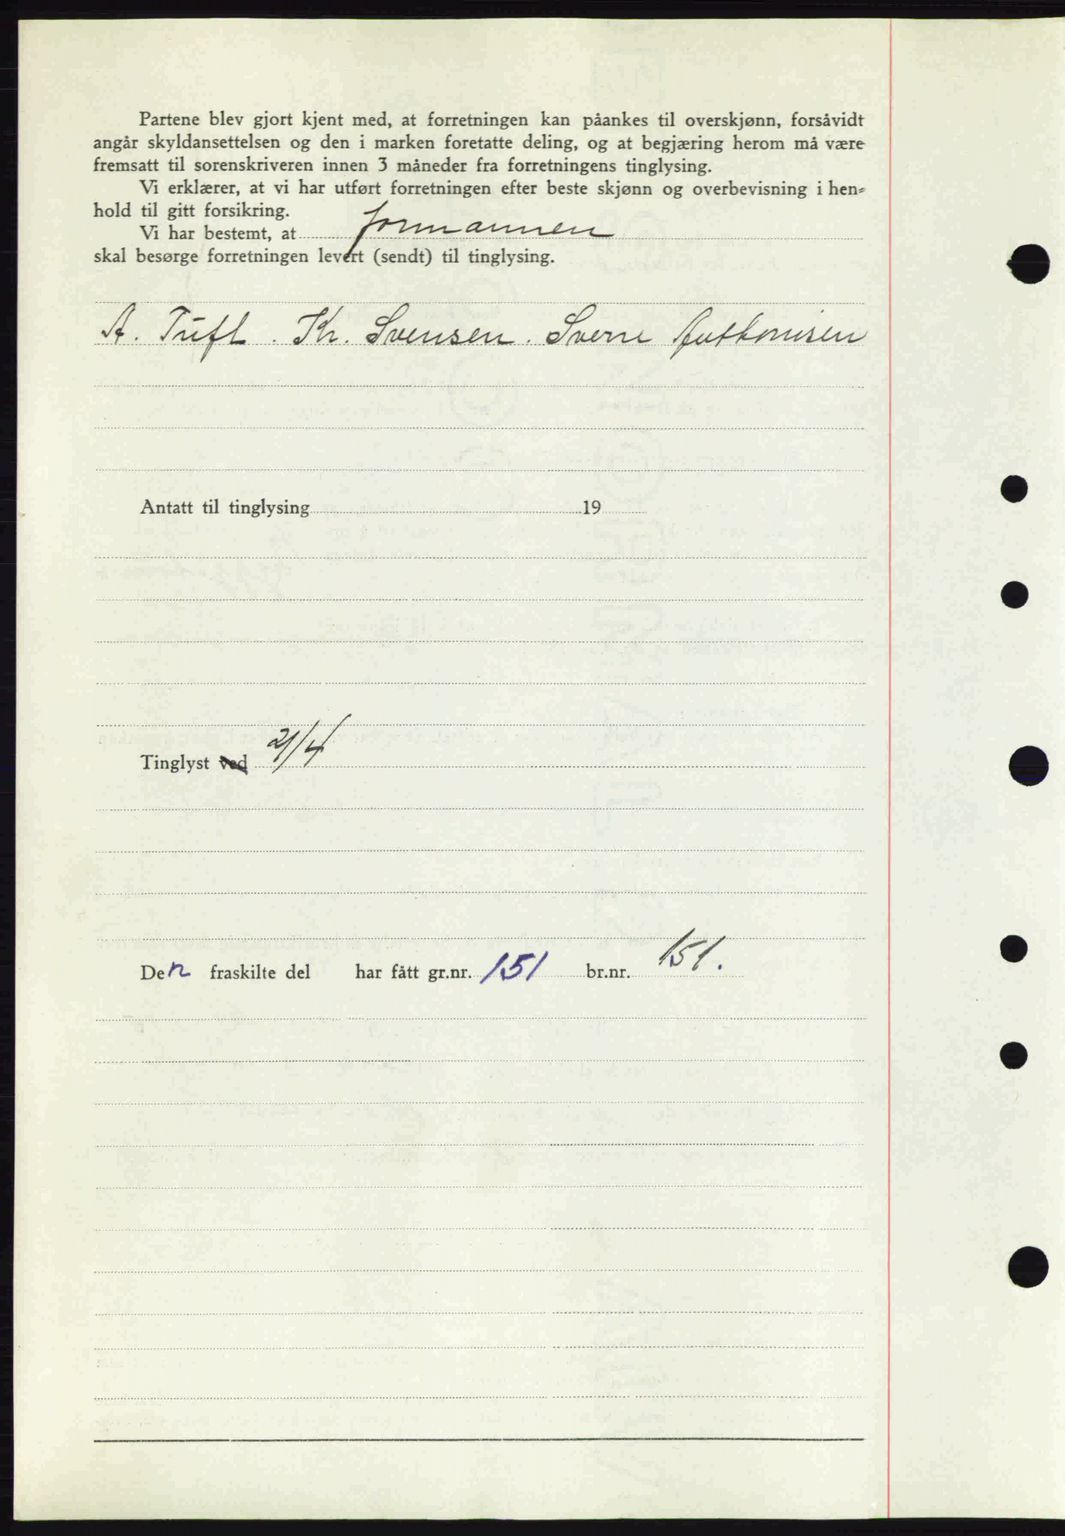 Partene blev gjort kjent med, at forretningen kan påankes til overskjønn, forsåvidt
angår skyldansettelsen og den i marken foretatte deling, og at begjæring herom må være
fremsatt til sorenskriveren innen 3 måneder fra forretningens tinglysing.
Vi erklærer, at vi har utført forretningen efter beste skjønn og overbevisning i hen-
hold til gitt forsikring.
Vi har bestemt, at formannen
skal besørge forretningen levert (sendt) til tinglysing.
A. Tuft. Kr. Svensen. Sverre Anthonisen
Antatt til tinglysing 19
Tinglyst ved 21/4
Den fraskilte del har fått gr.nr. 151 br.nr. 151.